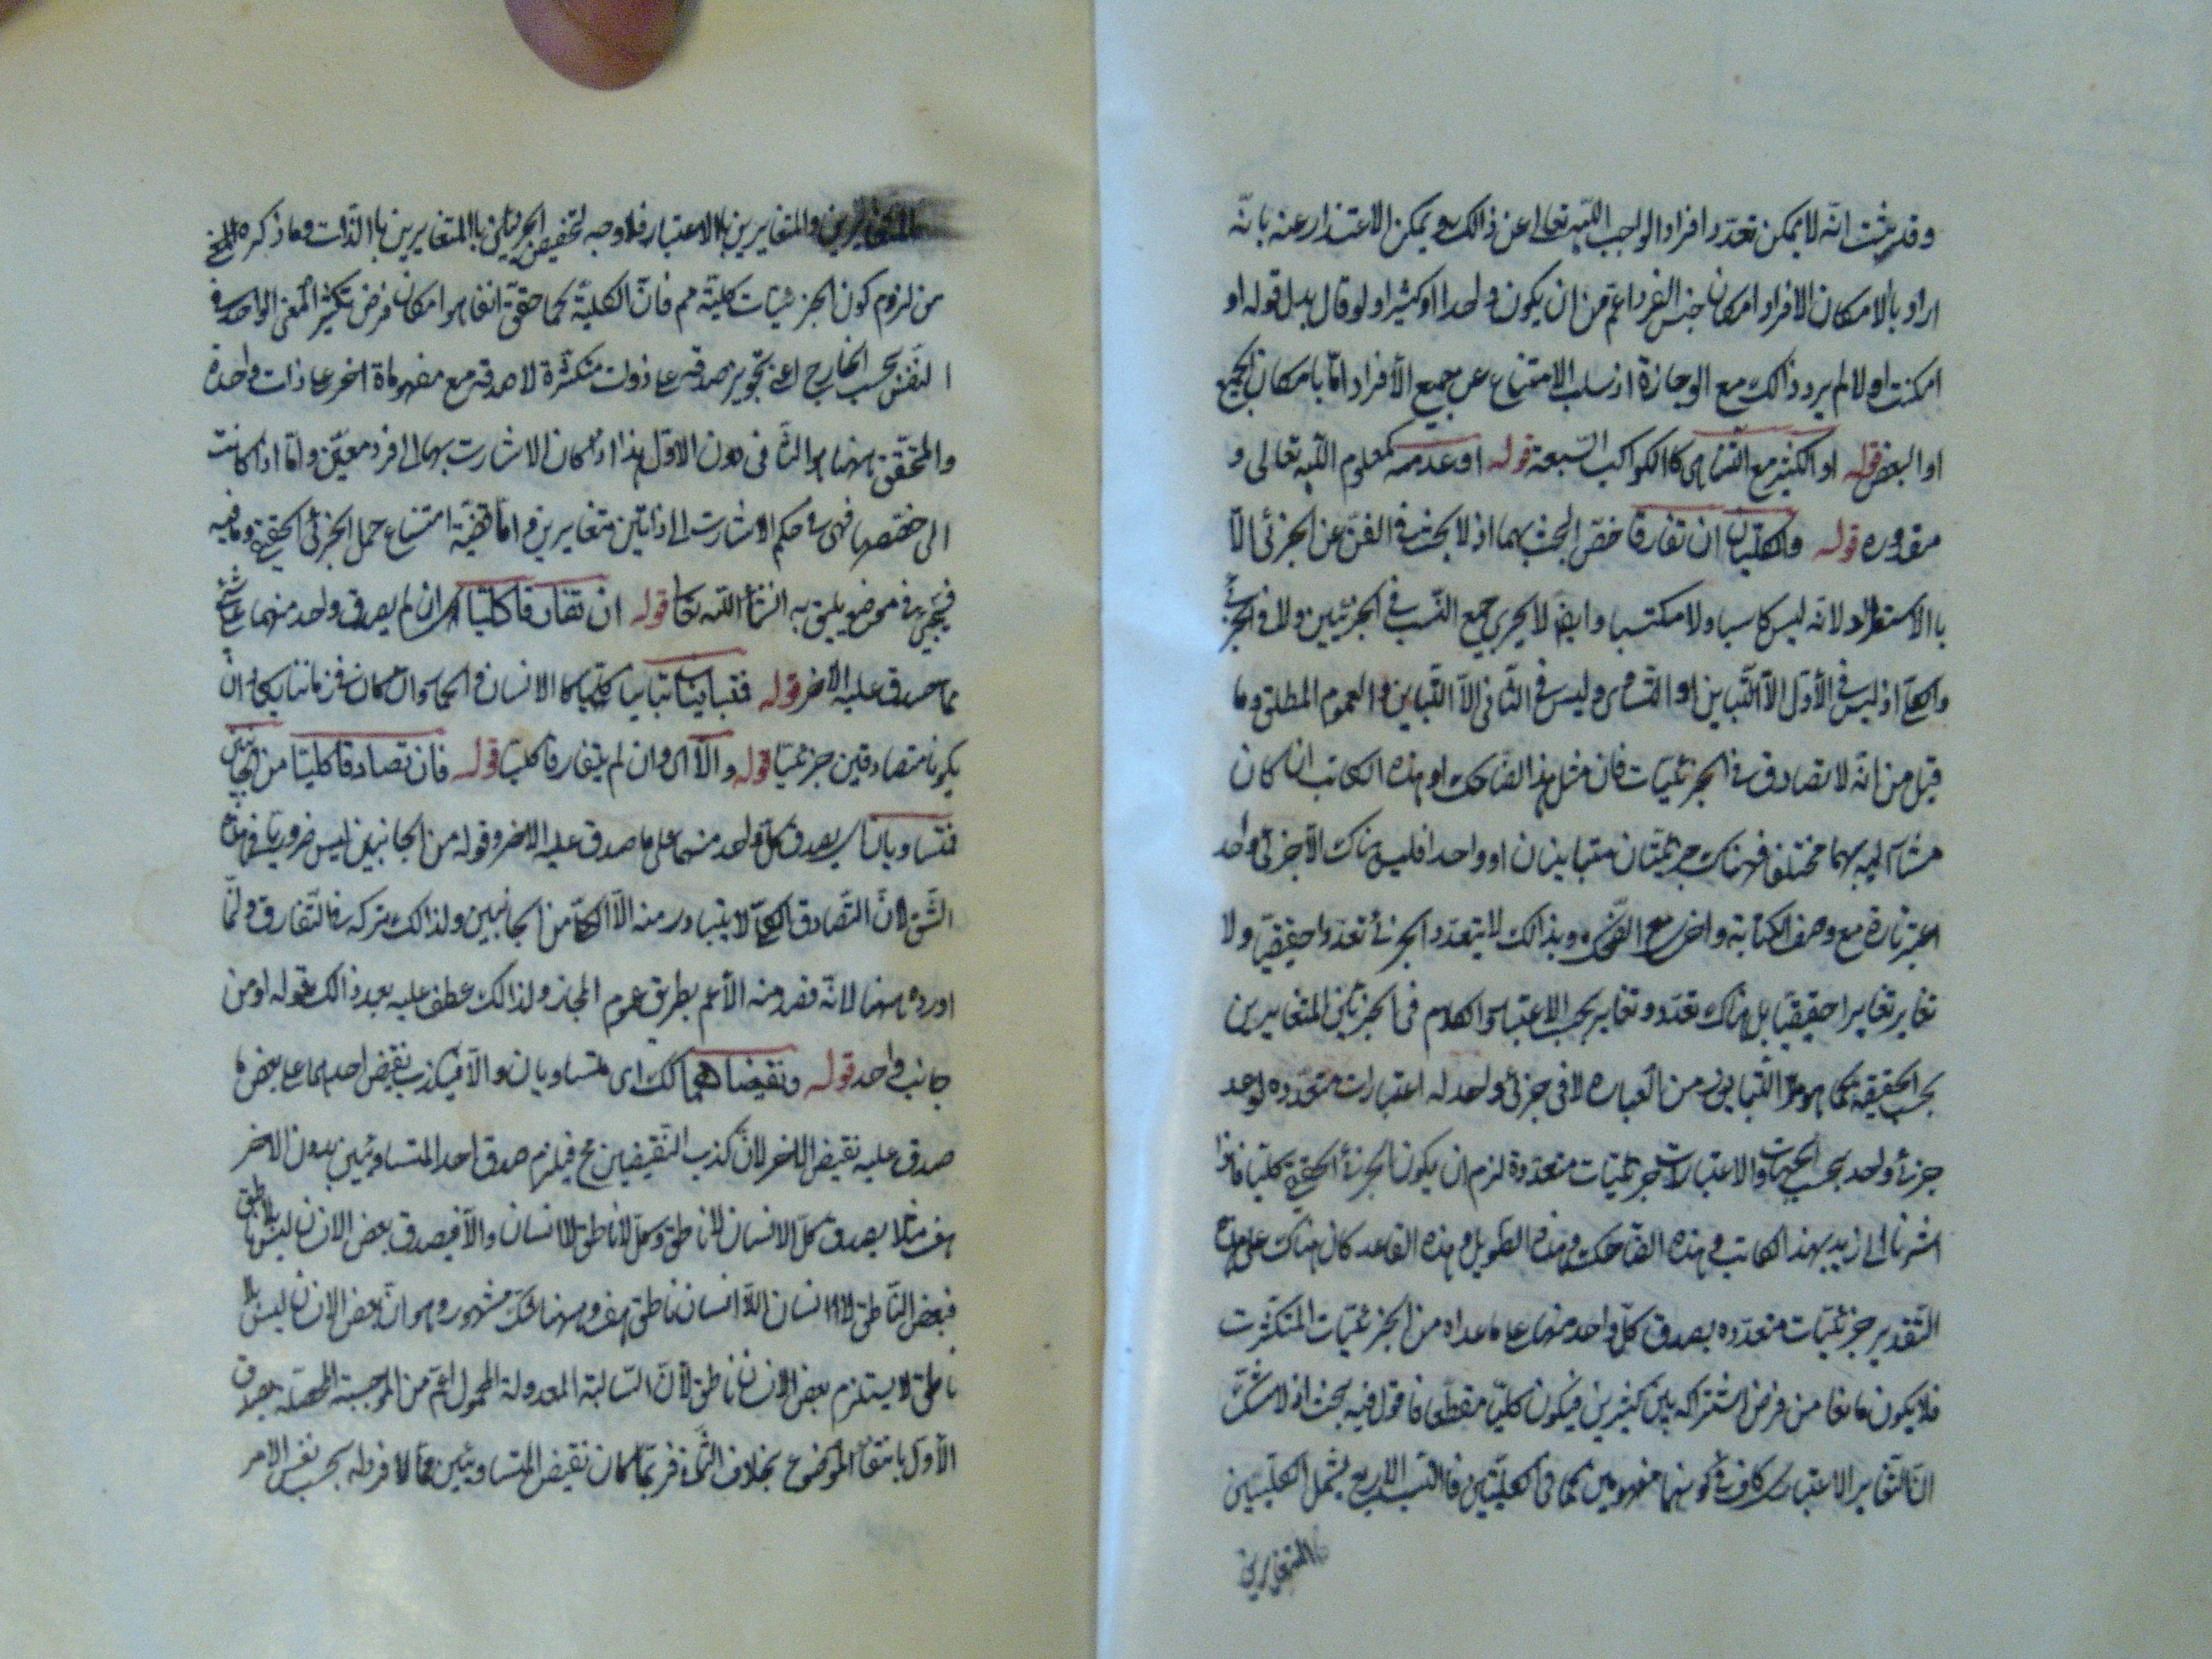 وقد ثبت انّه لا يمكن تعدّد افراد الواجب اللّه تعالى عن ذالك ويمكن الاعتذار عنه بانّه
اراد بالامكان الافراد امكان جنس الفرد اعم من ان يكون واحدا او كثيرا ولو قال بدل قوله او
امكنت اولا لم يرد ذالك مع الوجازة اذ سلب الامتناع عن جميع الأفراد امّا بامكان الجميع
او البعض قوله او الكثير مع التّناهى كا الكواكب السّبعة قوله او عدمه كمعلوم اللّه تعالى و
مقدوره قوله والكليّان ان تفارقا خصّ البحث بهما اذ لا بحث فى الفنّ عن الجزئى الّا
باالاستطراد لانّه ليس كاسبا ولا مكتسبا وايضا لا يجرى جمع النّسب فى الجزئيين ولا فى الجزئى
والكلّى اذ ليس فى الأوّل الّا التّباين او التّساوى وليس فى الثّانى الّا التّباين والعموم المطلق وما
قيل من انّه لا تصادق فى الجزئيّات فان مثل هذا الضّاحك او هذا الكاتب ان كان
مشار اليه بهما مختلفا فهناك جزئيّتان متباينان او واحدا فليس هناك الّا جزئى واحد
اعتبر تارة مع وصف الكتابة واخرى مع الضّحك وبذالك لا يتعدّد الجزئى تعدّدا حقيقيّا ولا
تغاير تغايرا حقيقيّا بل هناك تعدّد وتغاير بحسب الاعتبار والكلام فى الجزئيّين المتغايرين
بحسب الحقيقة كما هو المتبادر من العباره لا فى جزئى واحد له اعتبارات متعدّده لو عد
جزئى واحد بحسب الحيثيات والاعتبارات جزئيّات متعدّدة لزم ان يكون الجزئى الحقيقى كليّا فانا اذا
اشرنا الى زيد بهذا الكاتب وهذه الضّاحك وهذه الطّويل وهذه القاعد كان هناك على هذا
التّقدير جزئيّات متعدّده يصدق كلّ واحد منها على ما عداه من الجزئيّات المتكثّرت
فلا يكون مانعا من فرض اشتراكه بين كثيرين فيكون كليّا قطعا فاقول فيه بحث اذ لا شكّ
انّ التّغاير الاعتبارى كاف فى كونهما مفهومين كما فى الكليّتين فالنّسب الاربع يشمل الكليّين
المتغايرين
المتغايرين والمتغايرين باالاعتبار فلا وجه لتخصيص الجزئيّين باالمتغايرين باالذّات وما ذكره
من لزوم كون الجزئيّات كليّة مم فانّ الكليّة كما حقّق آنفا هو امكان فرض تكثير المعنى الواحد فى
النفس بحسب الخارج اعنى تجويز صدقه على ذوات متكثّرة لا صدقه مع مفهومات اخر على ذات واحدة
والمتحقّق هنا هو الثّانى دون الاوّل هذا اذا كان الاشارت بهما الى فرد معيّن وامّا اذا كانت
الى حصّتهما فهى فى حكم الاشارت الى ذاتين متغايرين وامّا قضيّة امتناع حمل الجزئى الحقيقى وما فيه
فيجىء فى موضع يليق به انشاء اللّه تعالى قوله ان تفارقا كليّا اى ان لم يصدق واحد منهما على شىء
ممّا صدق عليه الآخر قوله فتباينان تباينا كليّا كا الانسان والجماد وان كان فى زماننا يمكن ان
يكونا متصادقين جزئيّا قوله والّا اى وان لم يتفارقا كليّا قوله فان تصادقا كليّا من الجانبين
فتساويان اى يصدق كلّ واحد منهما على ما صدق عليه الاخر وقوله من الجانبين ليس ضروريّا فى هذا
الشّق لانّ التّصادق الكلّى لا يتبادر منه الّا الكلّى من الجانبين ولذالك يتركه فى التّفارق وانّما
اورده هنا لانّه قصد منه الأعم بطريق عموم المجاز ولذالك عطف عليه بعد ذالك بقوله او من
جانب واحد قوله ونقيضاهما كك اى متساويان والّا فيكذب نقيض احدهما على بعض ما
صدق عليه نقيض الاخر لانّ كذب النّقيضين مح فيلزم صدق احد المتساويين بدون الاخر
هف مثلا يصدق كلّ لا انسان لا ناطق وكلّ لا ناطق لا انسان والّا فيصدق بعض الا انسان ليس بلا ناطق
فبعض النّاطق لا انسان ناطق هف وههنا شك مشهور وهو انّ بعض الا انسان ليس بلا
ناطق لا يستلزم بعض الا انسان ناطق لانّ السّالبة المعدولة المحمول اعّم من الموجبة المحصّلة بصدق
الأوّل بانتفاء الموضوع بخلاف الثّانى فربّما كان نقيض المتساويين ممّا لا فرد له بحسب نفس الامر